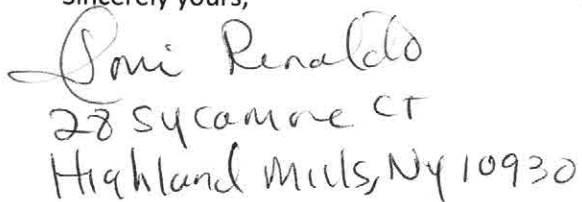 Sincerely yours,
Renaldo
28 Sycamore CT
Highland Mills, NY 10930